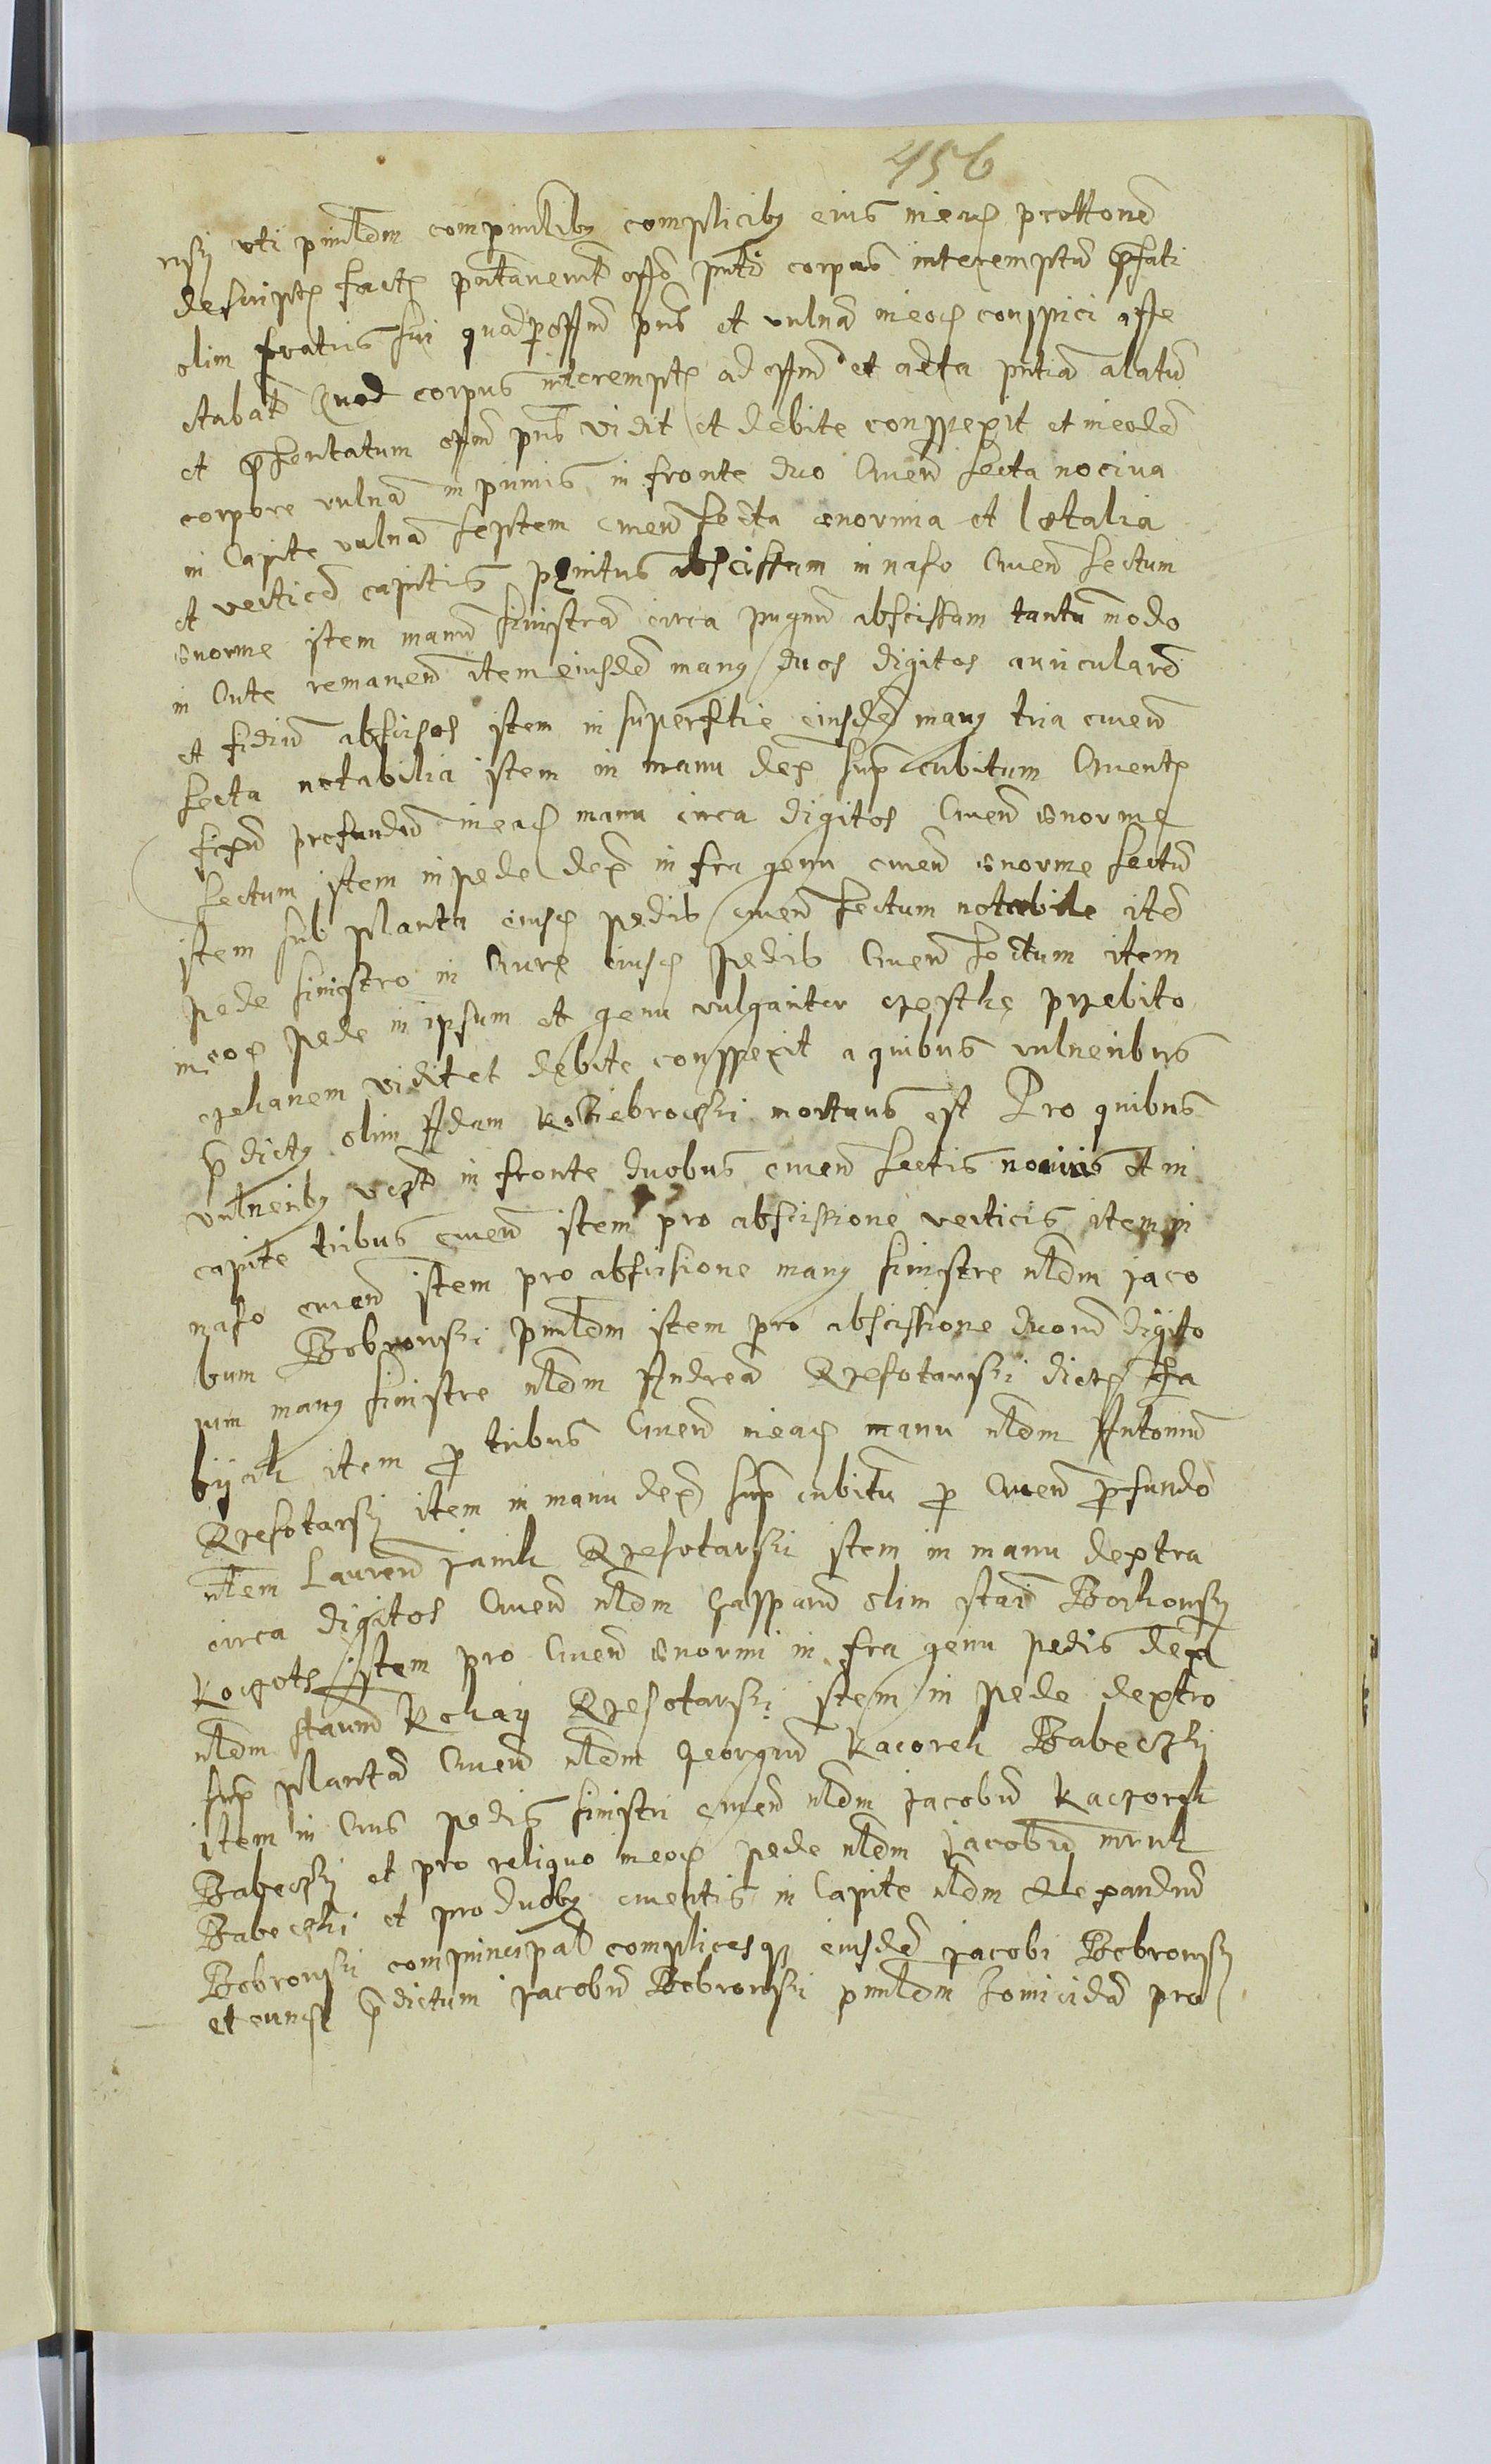 456
rsky uti prinlem comprinlibus complicibus eius in ead protttone
descripte facte pntaverunt offo pnti corpus interemptum prefati
olim fratris sui quod per offm pns et vulna in eod conspici affe
ctabat Quod corpus interempte ad offm et acta pntia alatum
et presentatum offm pns vidit et debite conspexit et in eodem
corpore vulna in primis in fronte duo cruen secta nociva
in Capite vulna septem cruen secta enormia et letalia
et verticem capitis penitus abscissum in naso cruen sectum
enorme item manum sinistram circa pugnum abscissam tantummodo
in Cute remanen item eiusdem manus duos digitos auricularem
et fidium abscisos item in superfitie eiusdem manus tria cruen
secta notabilia item in manu dex supra cubitum Cruente
fixum profundum in ead manu circa digitos Cruen enorme
sectum item in pede dex infra genu cruen enorme sectum
item sub planta eiusd pedis cruen sectum notabile item
pede sinistro in Crure eiusd pedis Cruen sectum item
in eod pede in ipsum et genu vulgariter czestke przebito
czekanem vidit et debite conspexit a quibus vulneribus
predictus olim Adam Kosiebroczki mortuus est Pro quibus
vulneribus vczt in fronte duobus cruen sectis nociuis et in
capite tribus cruen item pro abscissione verticis item in
naso cruen item pro abscisione manus sinistre nldm Jaco
bum Bobrowski prinldm item pro abscissione duorum digito
rum manus sinistre nldm Andream Rzeszotarski dicte Ka
byck item pro tribus Cruen in ead manu nldm Antonium
Rzesotarsky item in manu dex supra cubitum pro Cruen profundo
nlem Lauren Janik Rzesotarski item in manu dextra
circa digitos Cruen nldm Gasparum olim Stai Borkowsky
item pro Cruen enormi infra genu pedis dextri
nldm Staum Rzesotarski item in pede dextro
supra plantam Cruen nldm Georgium Kaczorek Babeczki
item in Crus pedis sinistri cruen nldm Jacobum Kaczorek
Babeczky et pro reliquo in eod pede nldm Jacobum mruk
Babeczki et pro duobus cruentis in Capite nldm Alexandrum
Bobrowski comprincipal complicesque eiusdem Jacobi Bobrowsky
et eunde predictum Jacobum Bobrowski prinldm homicidam pro